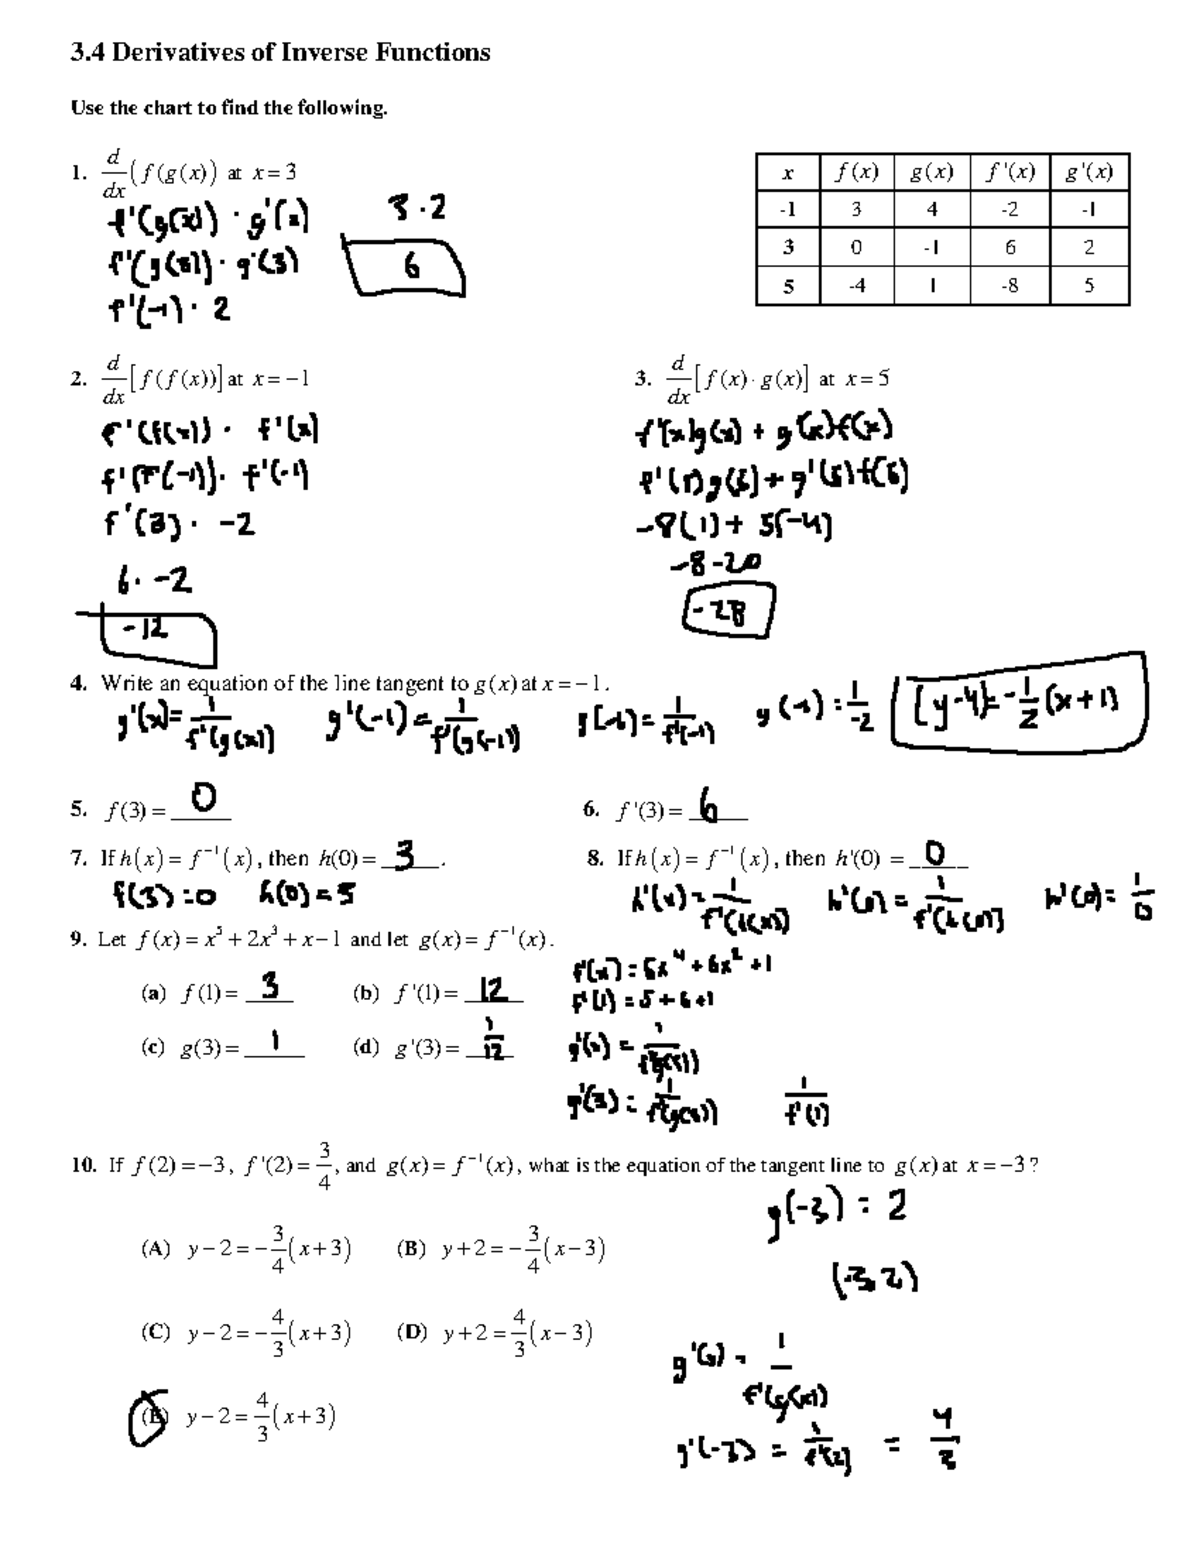 3.4 Derivatives of Inverse Functions
Use the chart to find the following.
1. d/dx (f(g(x)) at x = 3
f'(g(x)) · g'(x)
3 · 2
f'(g(3)) · g'(3)
6
f'(-1) · 2
x f(x) g(x) f'(x) g'(x)
-1 3 4 -2 -1
3 0 -1 6 2
5 -4 1 -8 5
2. d/dx [f(f(x))] at x = −1
f'(f(x)) · f'(x)
f'(f(-1)) · f'(-1)
f'(3) · -2
6 · -2
-12
3. d/dx [f(x) · g(x)] at x = 5
f'(x)g(x) + g'(x)f(x)
f'(5)g(5) + g'(5)f(5)
-8(1) + 5(-4)
-8-20
-28
4. Write an equation of the line tangent to g(x) at x = −1.
g'(x) = 1/f'(g(x)) g'(-1) = 1/f'(g(-1)) g(-1) = 1/f'(-1) g(-1) = 1/-2 (y-4) = -1/2 (x+1)
5. f(3) = 0
6. f'(3) = 6
7. If h(x) = f⁻¹(x), then h(0) = 3.
f(3) = 0 h(0) = 3
8. If h(x) = f⁻¹(x), then h'(0) = 0
h'(x) = 1/f'(h(x)) h'(0) = 1/f'(h(0)) h'(0) = 1/0
9. Let f(x) = x⁵ + 2x³ + x − 1 and let g(x) = f⁻¹(x).
(a) f(1) = 3 (b) f'(1) = 12
f'(x) = 5x⁴ + 6x² + 1
f'(1) = 5 + 6 + 1
(c) g(3) = 1 (d) g'(3) = 1/12
g'(x) = 1/f'(g(x))
g'(3) = 1/f'(g(3)) 1/f'(1)
10. If f(2) = −3, f'(2) = 3/4, and g(x) = f⁻¹(x), what is the equation of the tangent line to g(x) at x = −3?
g(-3) = 2
(-3, 2)
(A) y − 2 = −3/4 (x + 3) (B) y + 2 = −3/4 (x − 3)
(C) y − 2 = −4/3 (x + 3) (D) y + 2 = 4/3 (x − 3)
(E) y − 2 = 4/3 (x + 3)
g'(x) = 1/f'(g(x))
g'(-3) = 1/f'(2) = 4/3